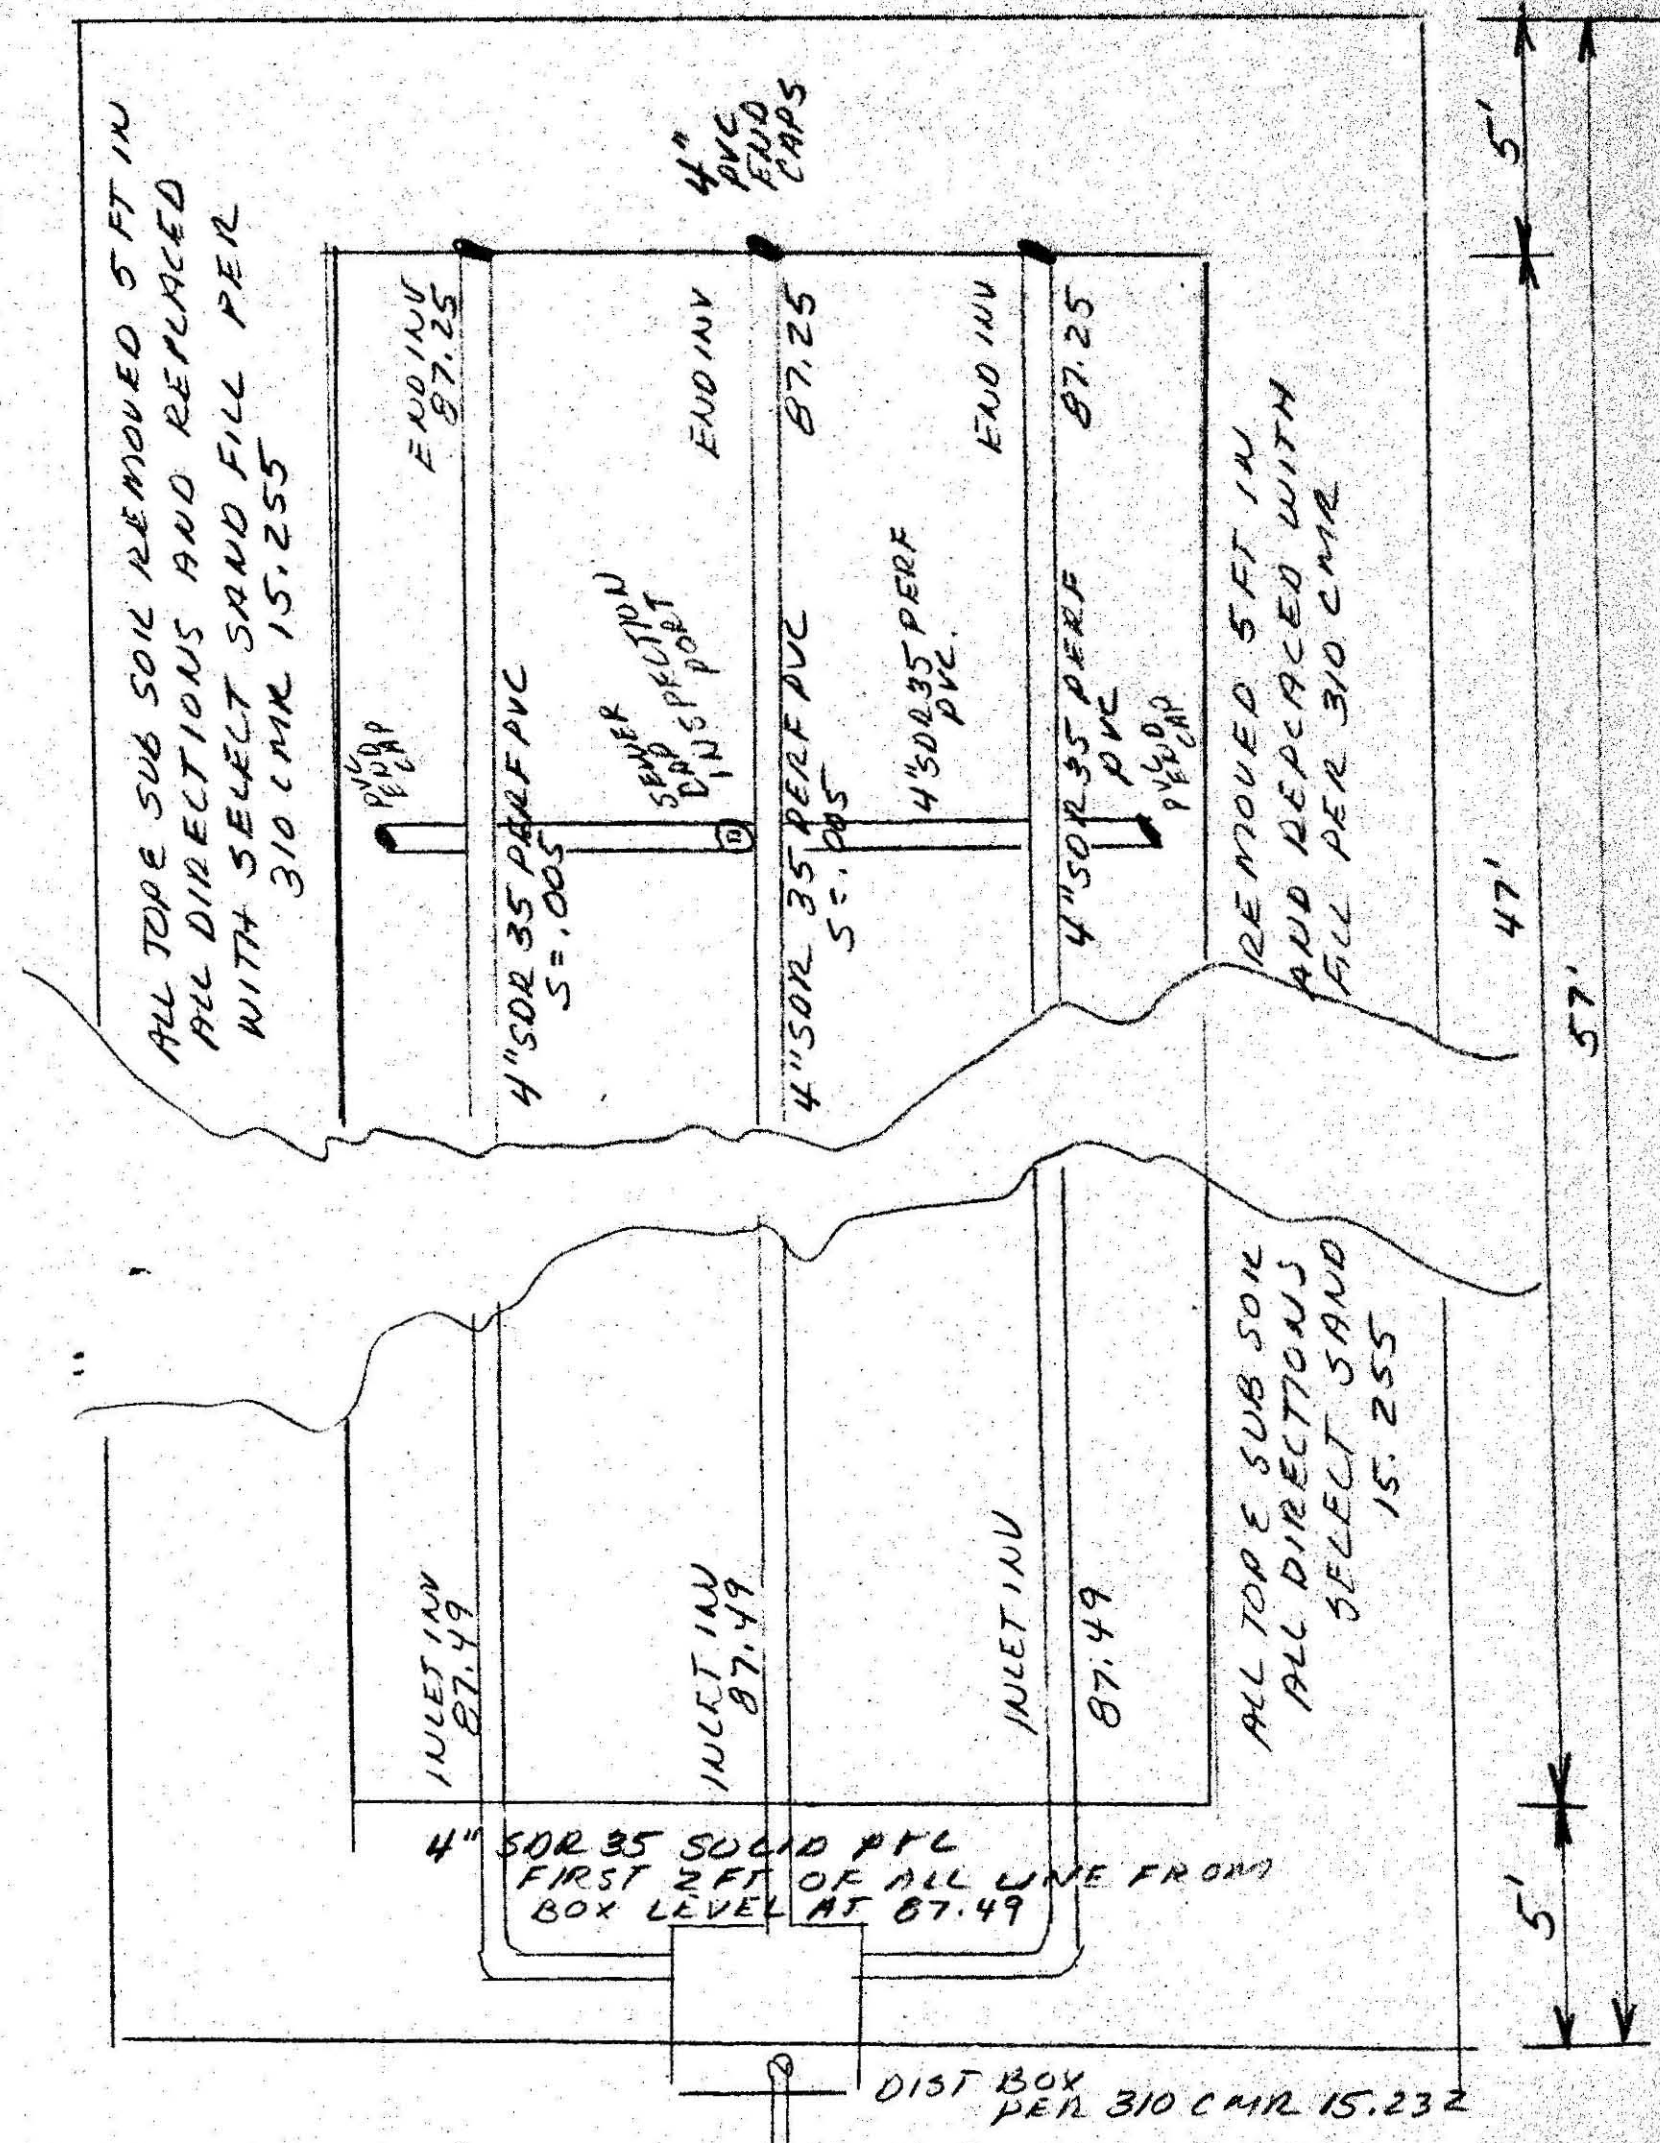 ALL TOP & SUB SOIL REMOVED 5 FT IN
ALL DIRECTIONS AND REPLACED
WITH SELECT SAND FILL PER
310 CMR 15.255
4"
PVC
END
CAPS
END INV
87.25
END INV
87.25
END INV
87.25
PVC
END
CAP
4" SDR 35 PERF PVC
S=.005
SEWER
CAP
INSPECTION
PORT
4" SDR 35 PERF PVC
S=.005
4" SDR 35 PERF
PVC.
4" SDR 35 PERF
PVC
PVC
END
CAP
REMOVED 5 FT IN
AND REPLACED WITH
FILL PER 310 CMR
ALL TOP & SUB SOIL
ALL DIRECTIONS
SELECT SAND
15.255
INLET INV
87.49
INLET INV
87.49
INLET INV
87.49
4" SDR 35 SOLID PVC
FIRST 2 FT OF ALL LINE FROM
BOX LEVEL AT 87.49
DIST BOX
PER 310 CMR 15.232
5'
47'
57'
5'